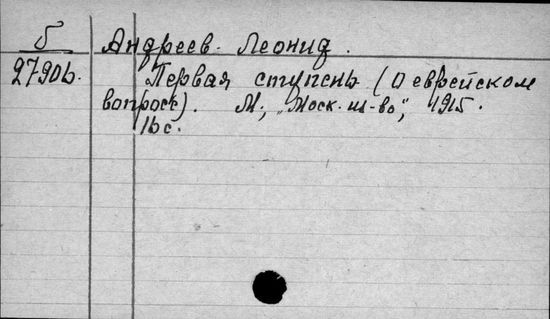 Б Андреев Леонид.
27906. Первая ступень (О еврейском
вопросе). М., "Моск. и-во", 1915.
16 с.